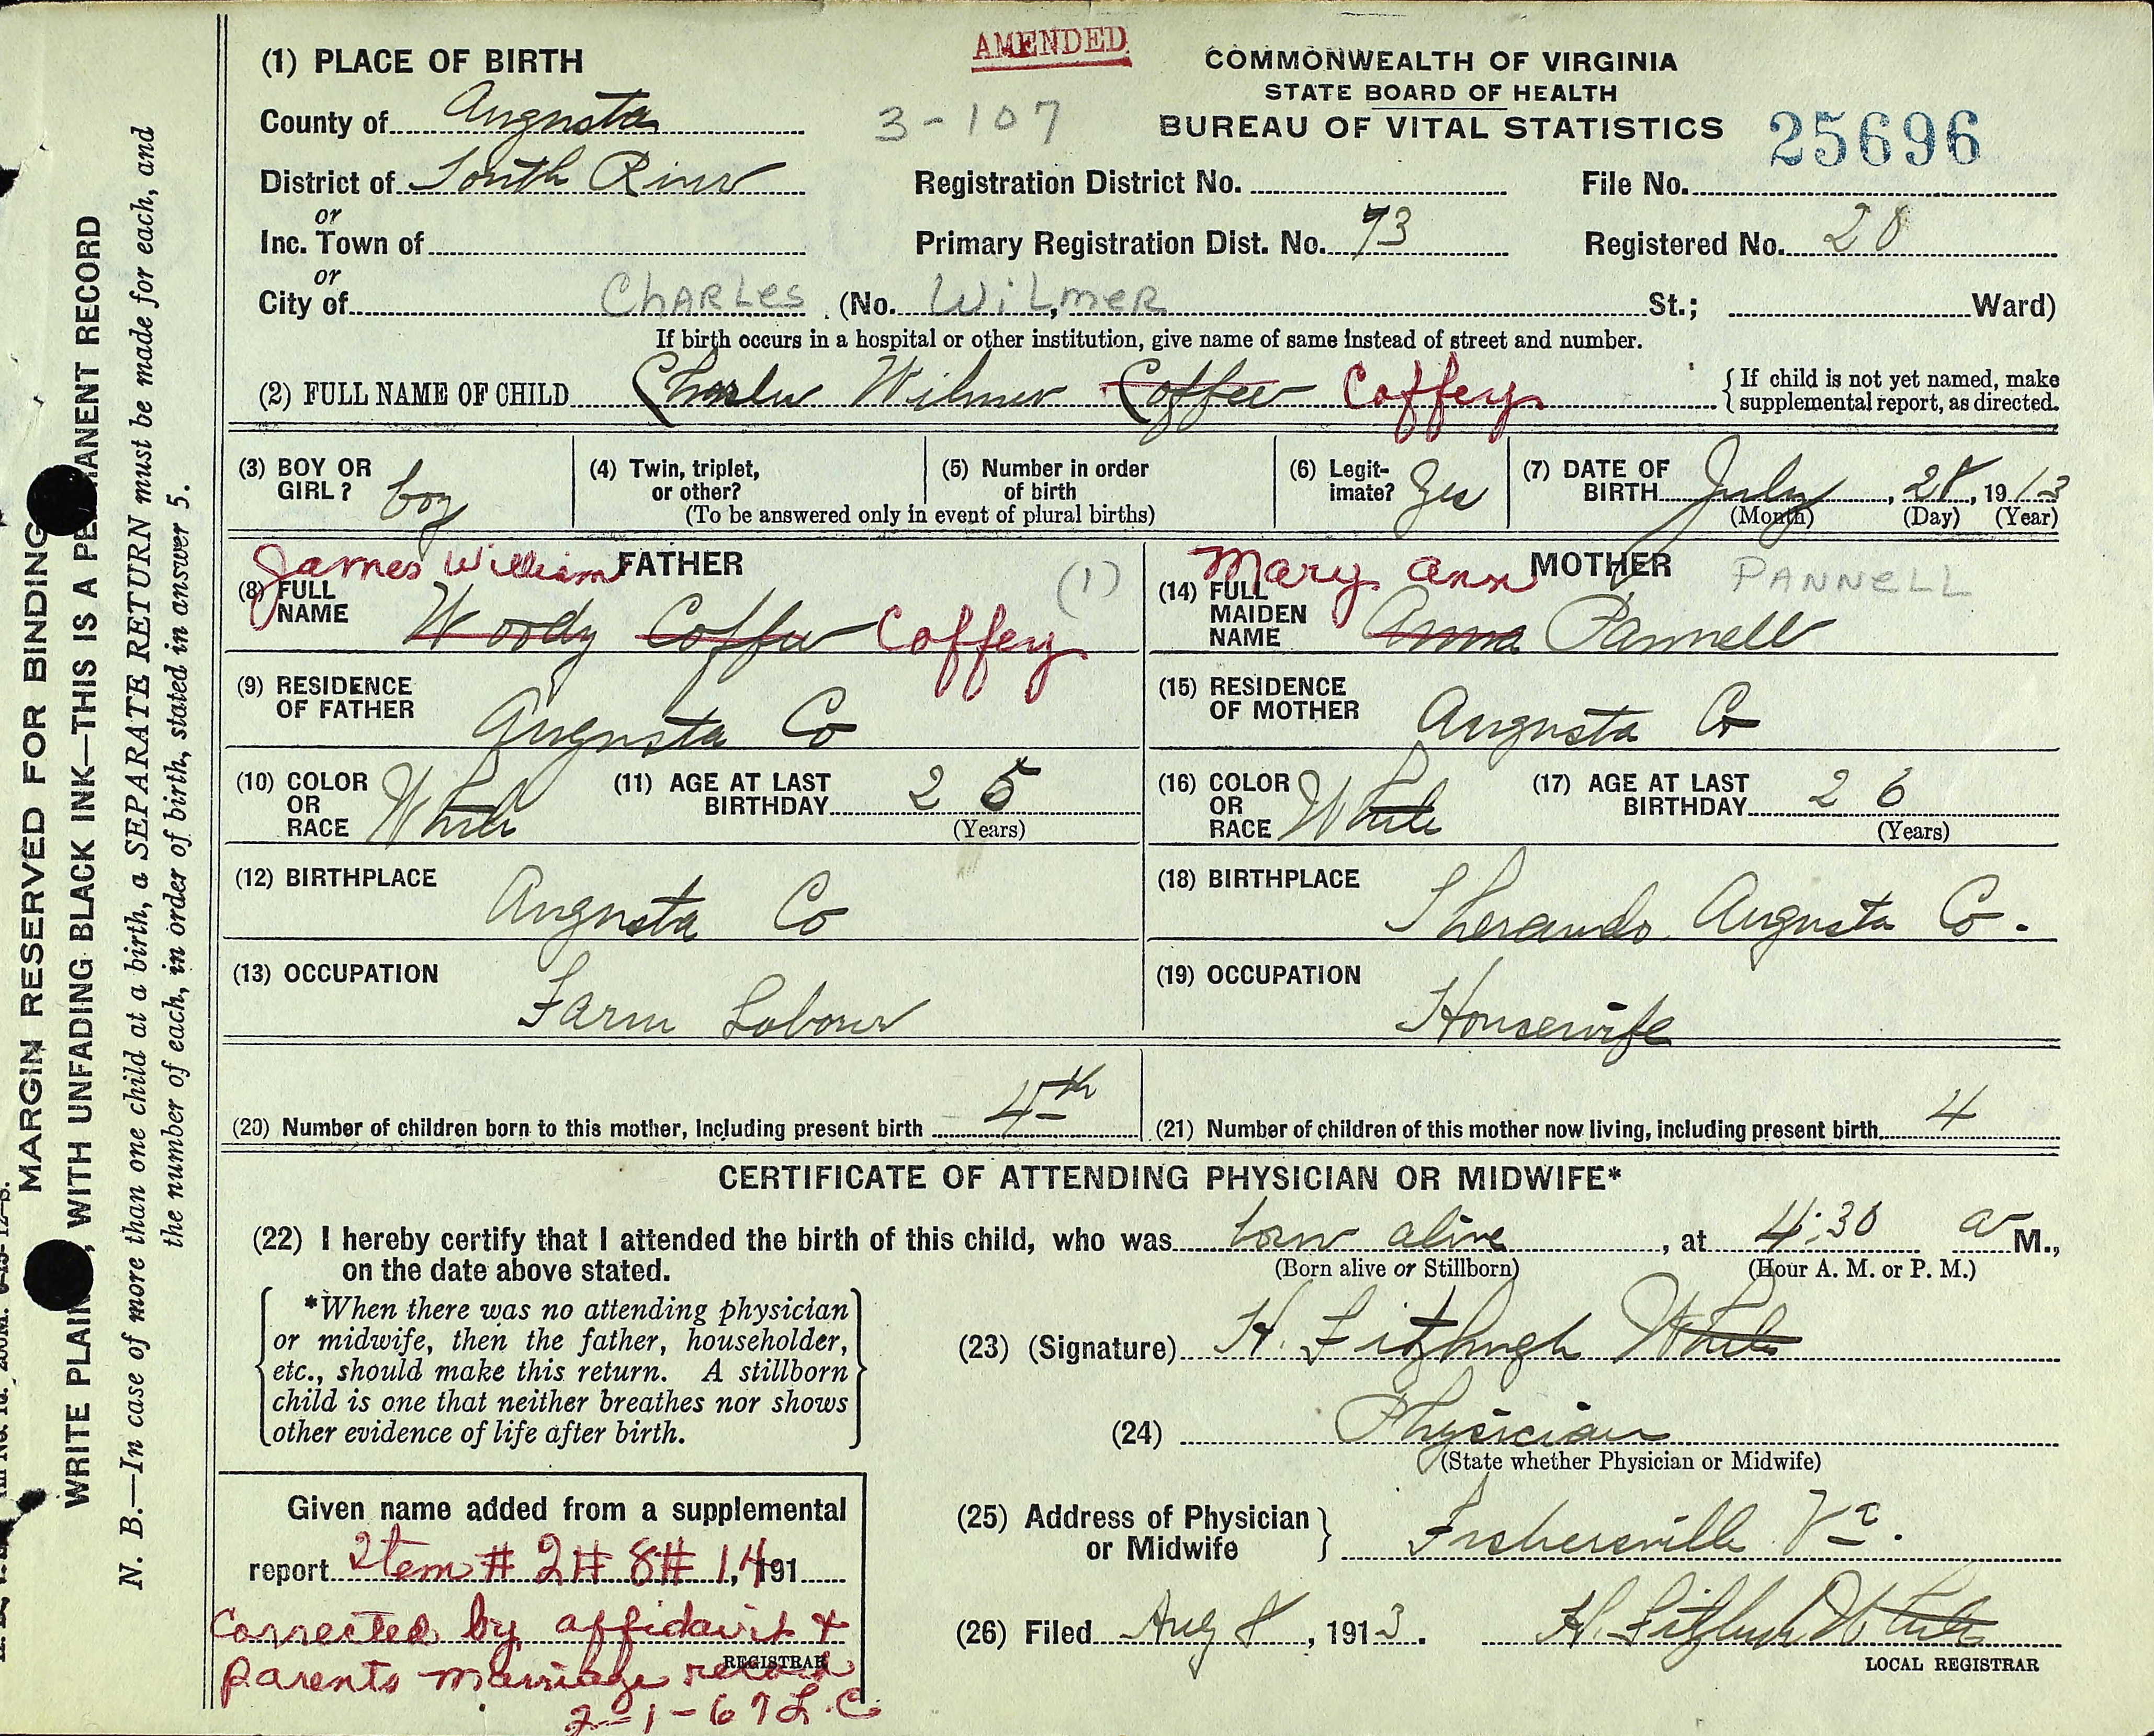 AMENDED
(1) PLACE OF BIRTH
COMMONWEALTH OF VIRGINIA
STATE BOARD OF HEALTH
BUREAU OF VITAL STATISTICS
25696
County of Augusta
3-107
District of South River
Registration District No.
File No.
or
Inc. Town of
Primary Registration Dist. No. 73
Registered No. 28
or
City of CHARLES (No. WILMER St.; Ward)
If birth occurs in a hospital or other institution, give name of same instead of street and number.
(2) FULL NAME OF CHILD Charles Wilmer Coffee Coffey
{If child is not yet named, make
supplemental report, as directed.
(3) BOY OR GIRL? boy
(4) Twin, triplet, or other?
(5) Number in order of birth
(To be answered only in event of plural births)
(6) Legitimate? Yes
(7) DATE OF BIRTH July, 28, 1913
(Month) (Day) (Year)
FATHER
James William
(8) FULL NAME Woody Coffee Coffey
(1)
MOTHER
Mary Ann
PANNELL
(14) FULL MAIDEN NAME Anna Pannell
(9) RESIDENCE OF FATHER Augusta Co
(15) RESIDENCE OF MOTHER Augusta Co
(10) COLOR OR RACE White
(11) AGE AT LAST BIRTHDAY 25
(Years)
(16) COLOR OR RACE White
(17) AGE AT LAST BIRTHDAY 26
(Years)
(12) BIRTHPLACE Augusta Co
(18) BIRTHPLACE Sherando, Augusta Co.
(13) OCCUPATION Farm Laborer
(19) OCCUPATION Housewife
(20) Number of children born to this mother, including present birth 4th
(21) Number of children of this mother now living, including present birth 4
CERTIFICATE OF ATTENDING PHYSICIAN OR MIDWIFE*
(22) I hereby certify that I attended the birth of this child, who was born alive, at 4:30 a M.,
on the date above stated.
(Born alive or Stillborn)
(Hour A. M. or P. M.)
*When there was no attending physician
or midwife, then the father, householder,
etc., should make this return. A stillborn
child is one that neither breathes nor shows
other evidence of life after birth.
(23) (Signature) H. Fitzhugh White
(24) Physician
(State whether Physician or Midwife)
(25) Address of Physician or Midwife } Fishersville Va.
(26) Filed Aug 8, 1913. H. Fitzhugh White
LOCAL REGISTRAR
Given name added from a supplemental
report Item # 2# 8# 14, 191
Corrected by affidavit &
parents marriage record
REGISTRAR
2-1-67 L.C.
MARGIN RESERVED FOR BINDING
WRITE PLAIN, WITH UNFADING BLACK INK—THIS IS A PERMANENT RECORD
N. B.—In case of more than one child at a birth, a SEPARATE RETURN must be made for each, and
the number of each, in order of birth, stated in answer 5.